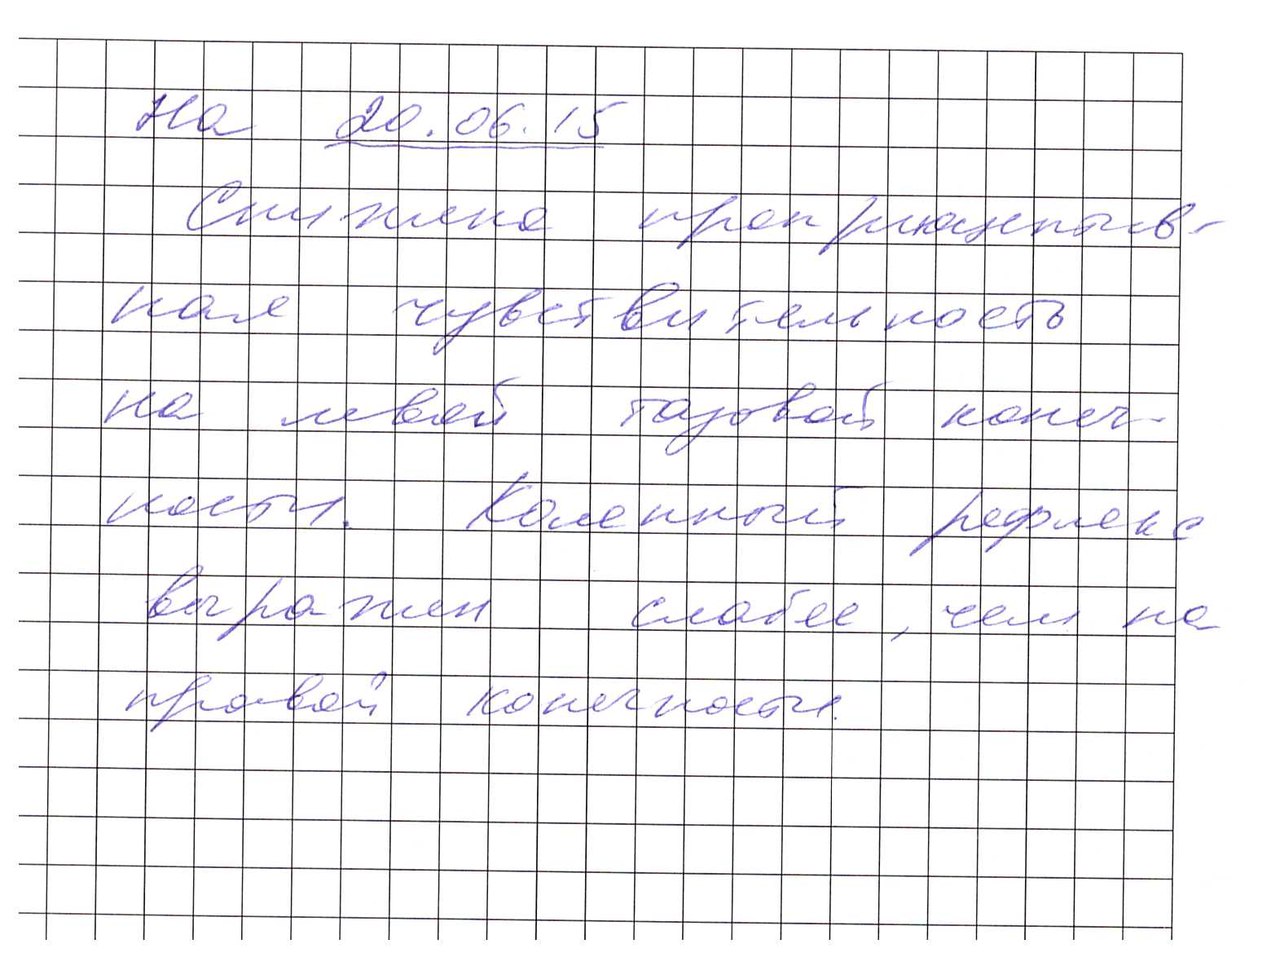 На 20.06.15
Снижена проприоцептив-
ная чувствительность
на левой тазовой конеч-
ности. Коленный рефлекс
выражен слабее, чем на
правой конечности.